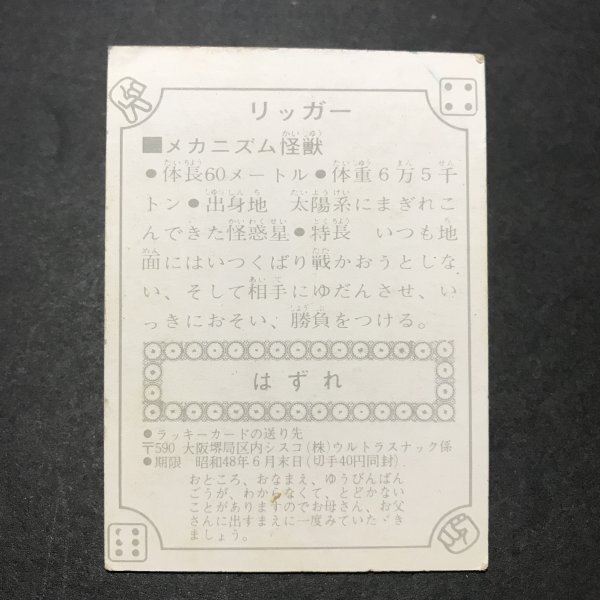 リッガー
■メカニズム怪獣
●体長60メートル●体重6万5千
トン●出身地　太陽系にまぎれこ
んできた怪惑星●特長　いつも地
面にはいつくばり戦かおうとしな
い、そして相手にゆだんさせ、い
っきにおそい、勝負をつける。
はずれ
●ラッキーカードの送り先
〒590 大阪堺局区内シスコ(株)ウルトラスナック係
●期限　昭和48年6月末日(切手40円同封).
おところ、おなまえ、ゆうびんばん
ごうが、わからなくて、とどかない
ことがありますのでお母さん、お父
さんに出すまえに一度みていただき
ましょう。